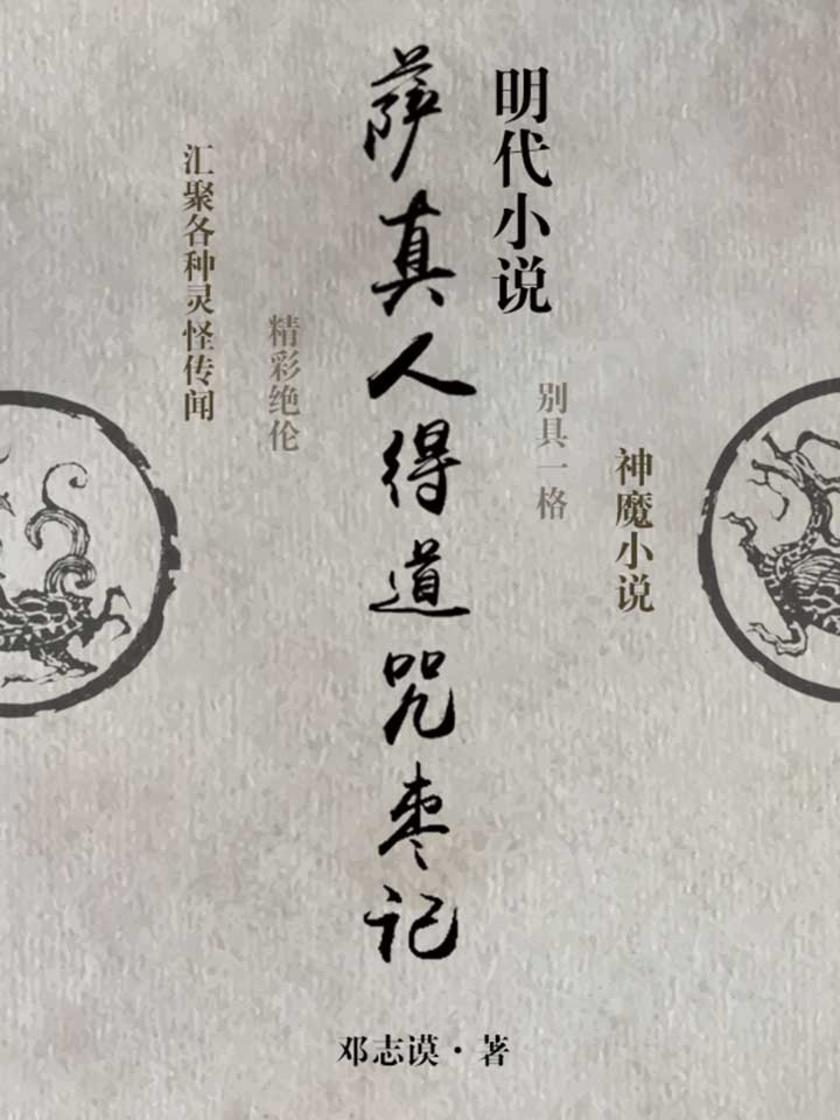 明代小说
萨真人得道咒枣记
神魔小说
别具一格
精彩绝伦
汇聚各种灵怪传闻
邓志谟·著